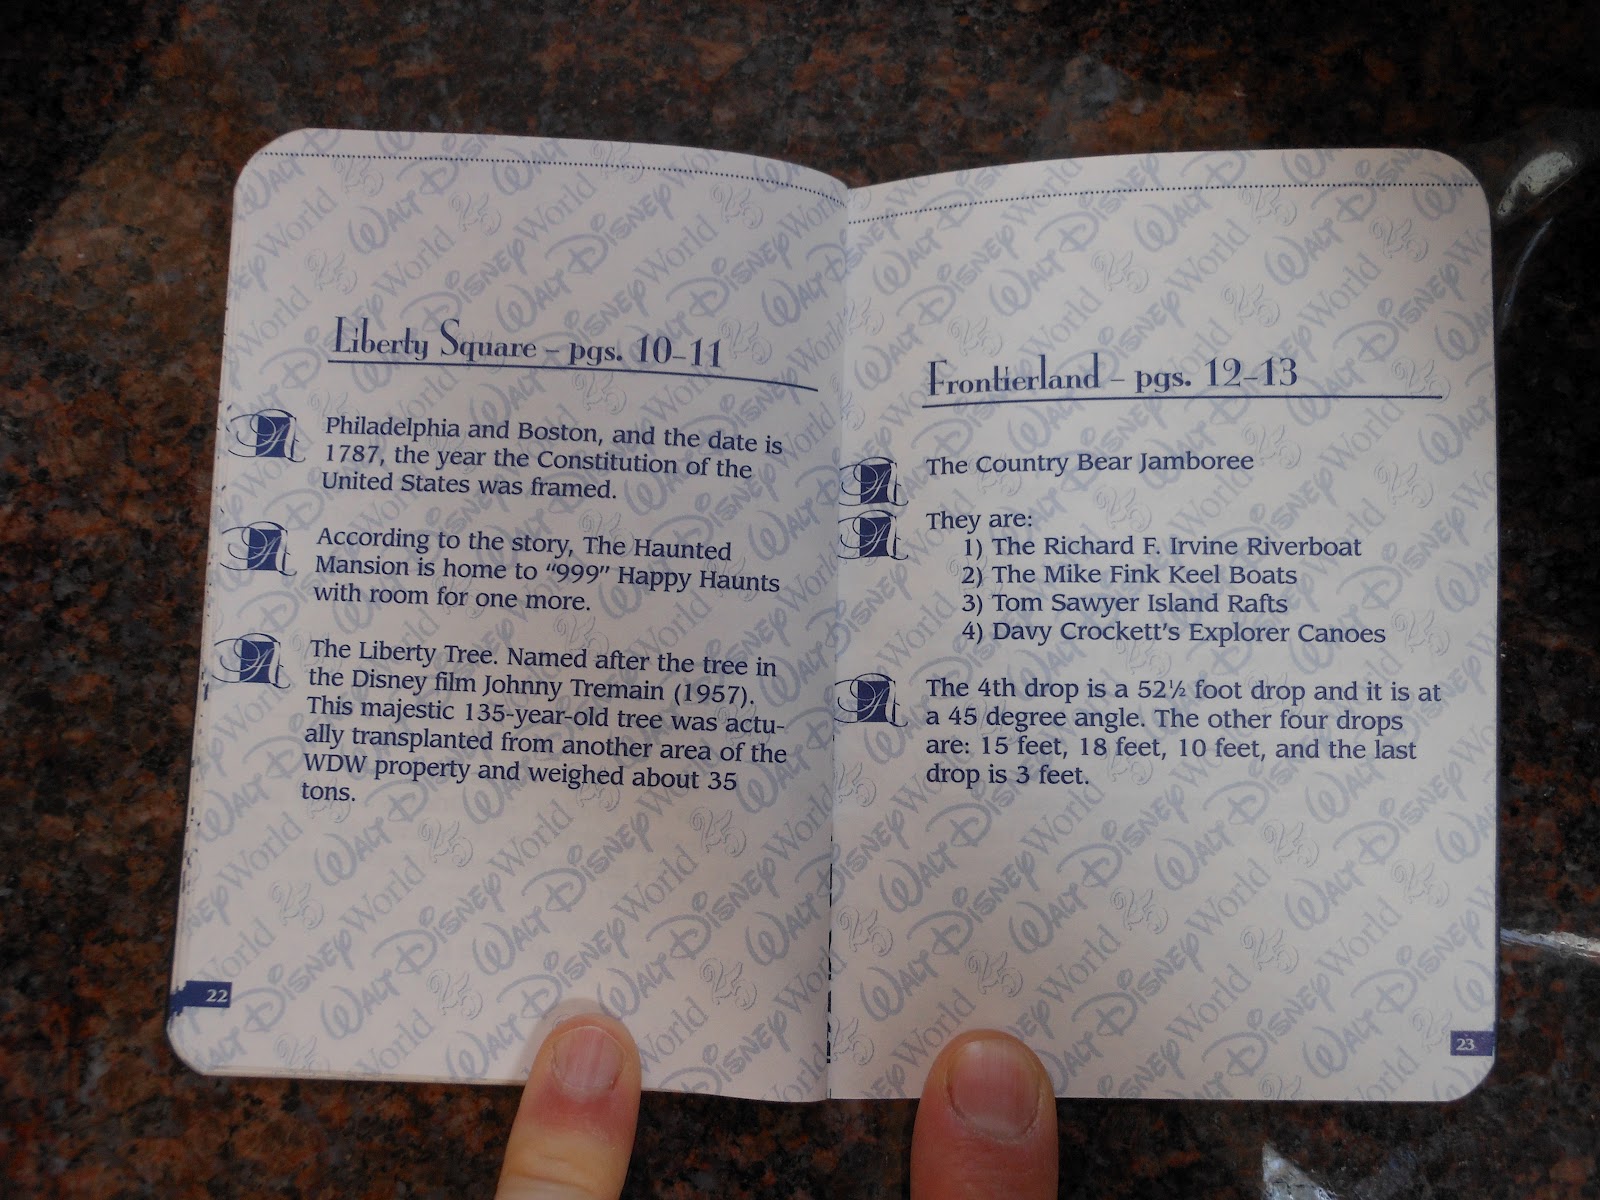 Liberty Square – pgs. 10–11
Philadelphia and Boston, and the date is
1787, the year the Constitution of the
United States was framed.
According to the story, The Haunted
Mansion is home to “999” Happy Haunts
with room for one more.
The Liberty Tree. Named after the tree in
the Disney film Johnny Tremain (1957).
This majestic 135-year-old tree was actu-
ally transplanted from another area of the
WDW property and weighed about 35
tons.
22
Frontierland – pgs. 12–13
The Country Bear Jamboree
They are:
1) The Richard F. Irvine Riverboat
2) The Mike Fink Keel Boats
3) Tom Sawyer Island Rafts
4) Davy Crockett’s Explorer Canoes
The 4th drop is a 52½ foot drop and it is at
a 45 degree angle. The other four drops
are: 15 feet, 18 feet, 10 feet, and the last
drop is 3 feet.
23
Walt Disney World